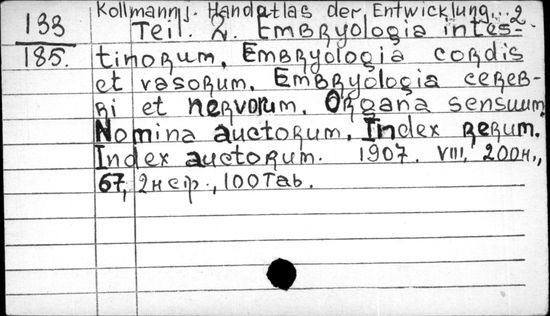 133
185.
Kollmann J. Handatlas der Entwicklung... 2
Teil. 2. Embryologia intes-
tinorum, Embryologia cordis
et vasorum. Embryologia cereb-
ri et nervorum. Organa sensuum
Nomina auctorum. Index rerum.
Index auctorum. 1907. VIII, 200н.,
67, 2н ср., 100Tab.